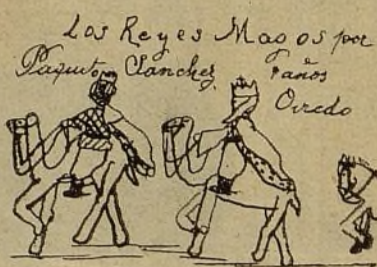 Los Reyes Magos por
Paquito Sanchez. 7 años
Oviedo